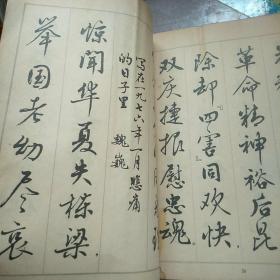 革命精神裕后昆
除却四害同欢快
双庆捷报慰忠魂
写在一九七六年一月悲痛
的日子里 魏巍
惊闻华夏失栋梁
举国老幼尽哀